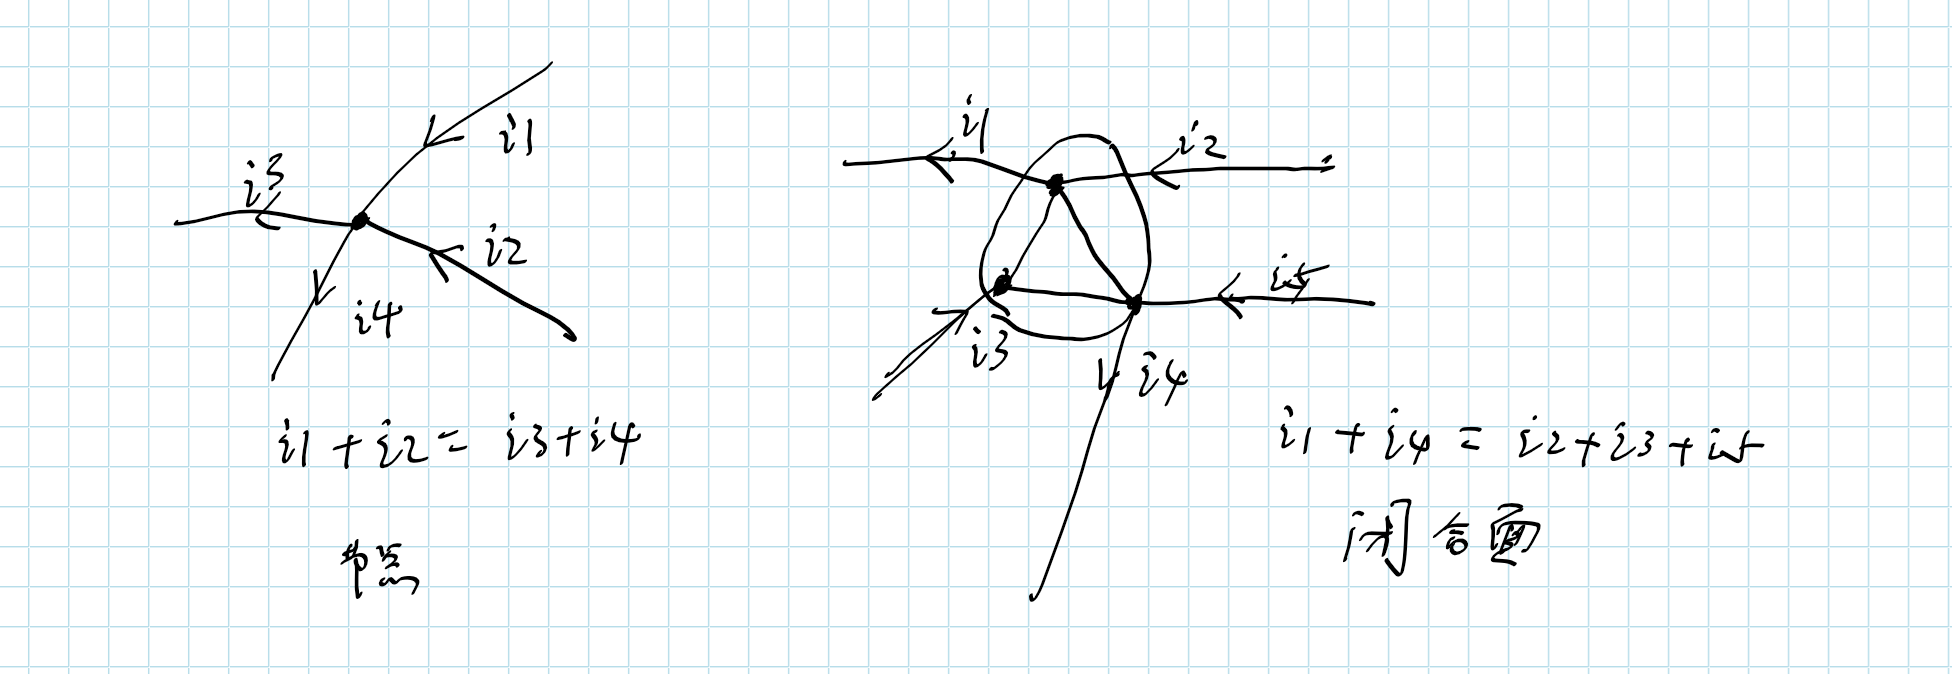 i1
i3
i2
i4
i1+i2=i3+i4
节点
i1
i2
i5
i3
i4
i1+i4=i2+i3+i5
闭合面